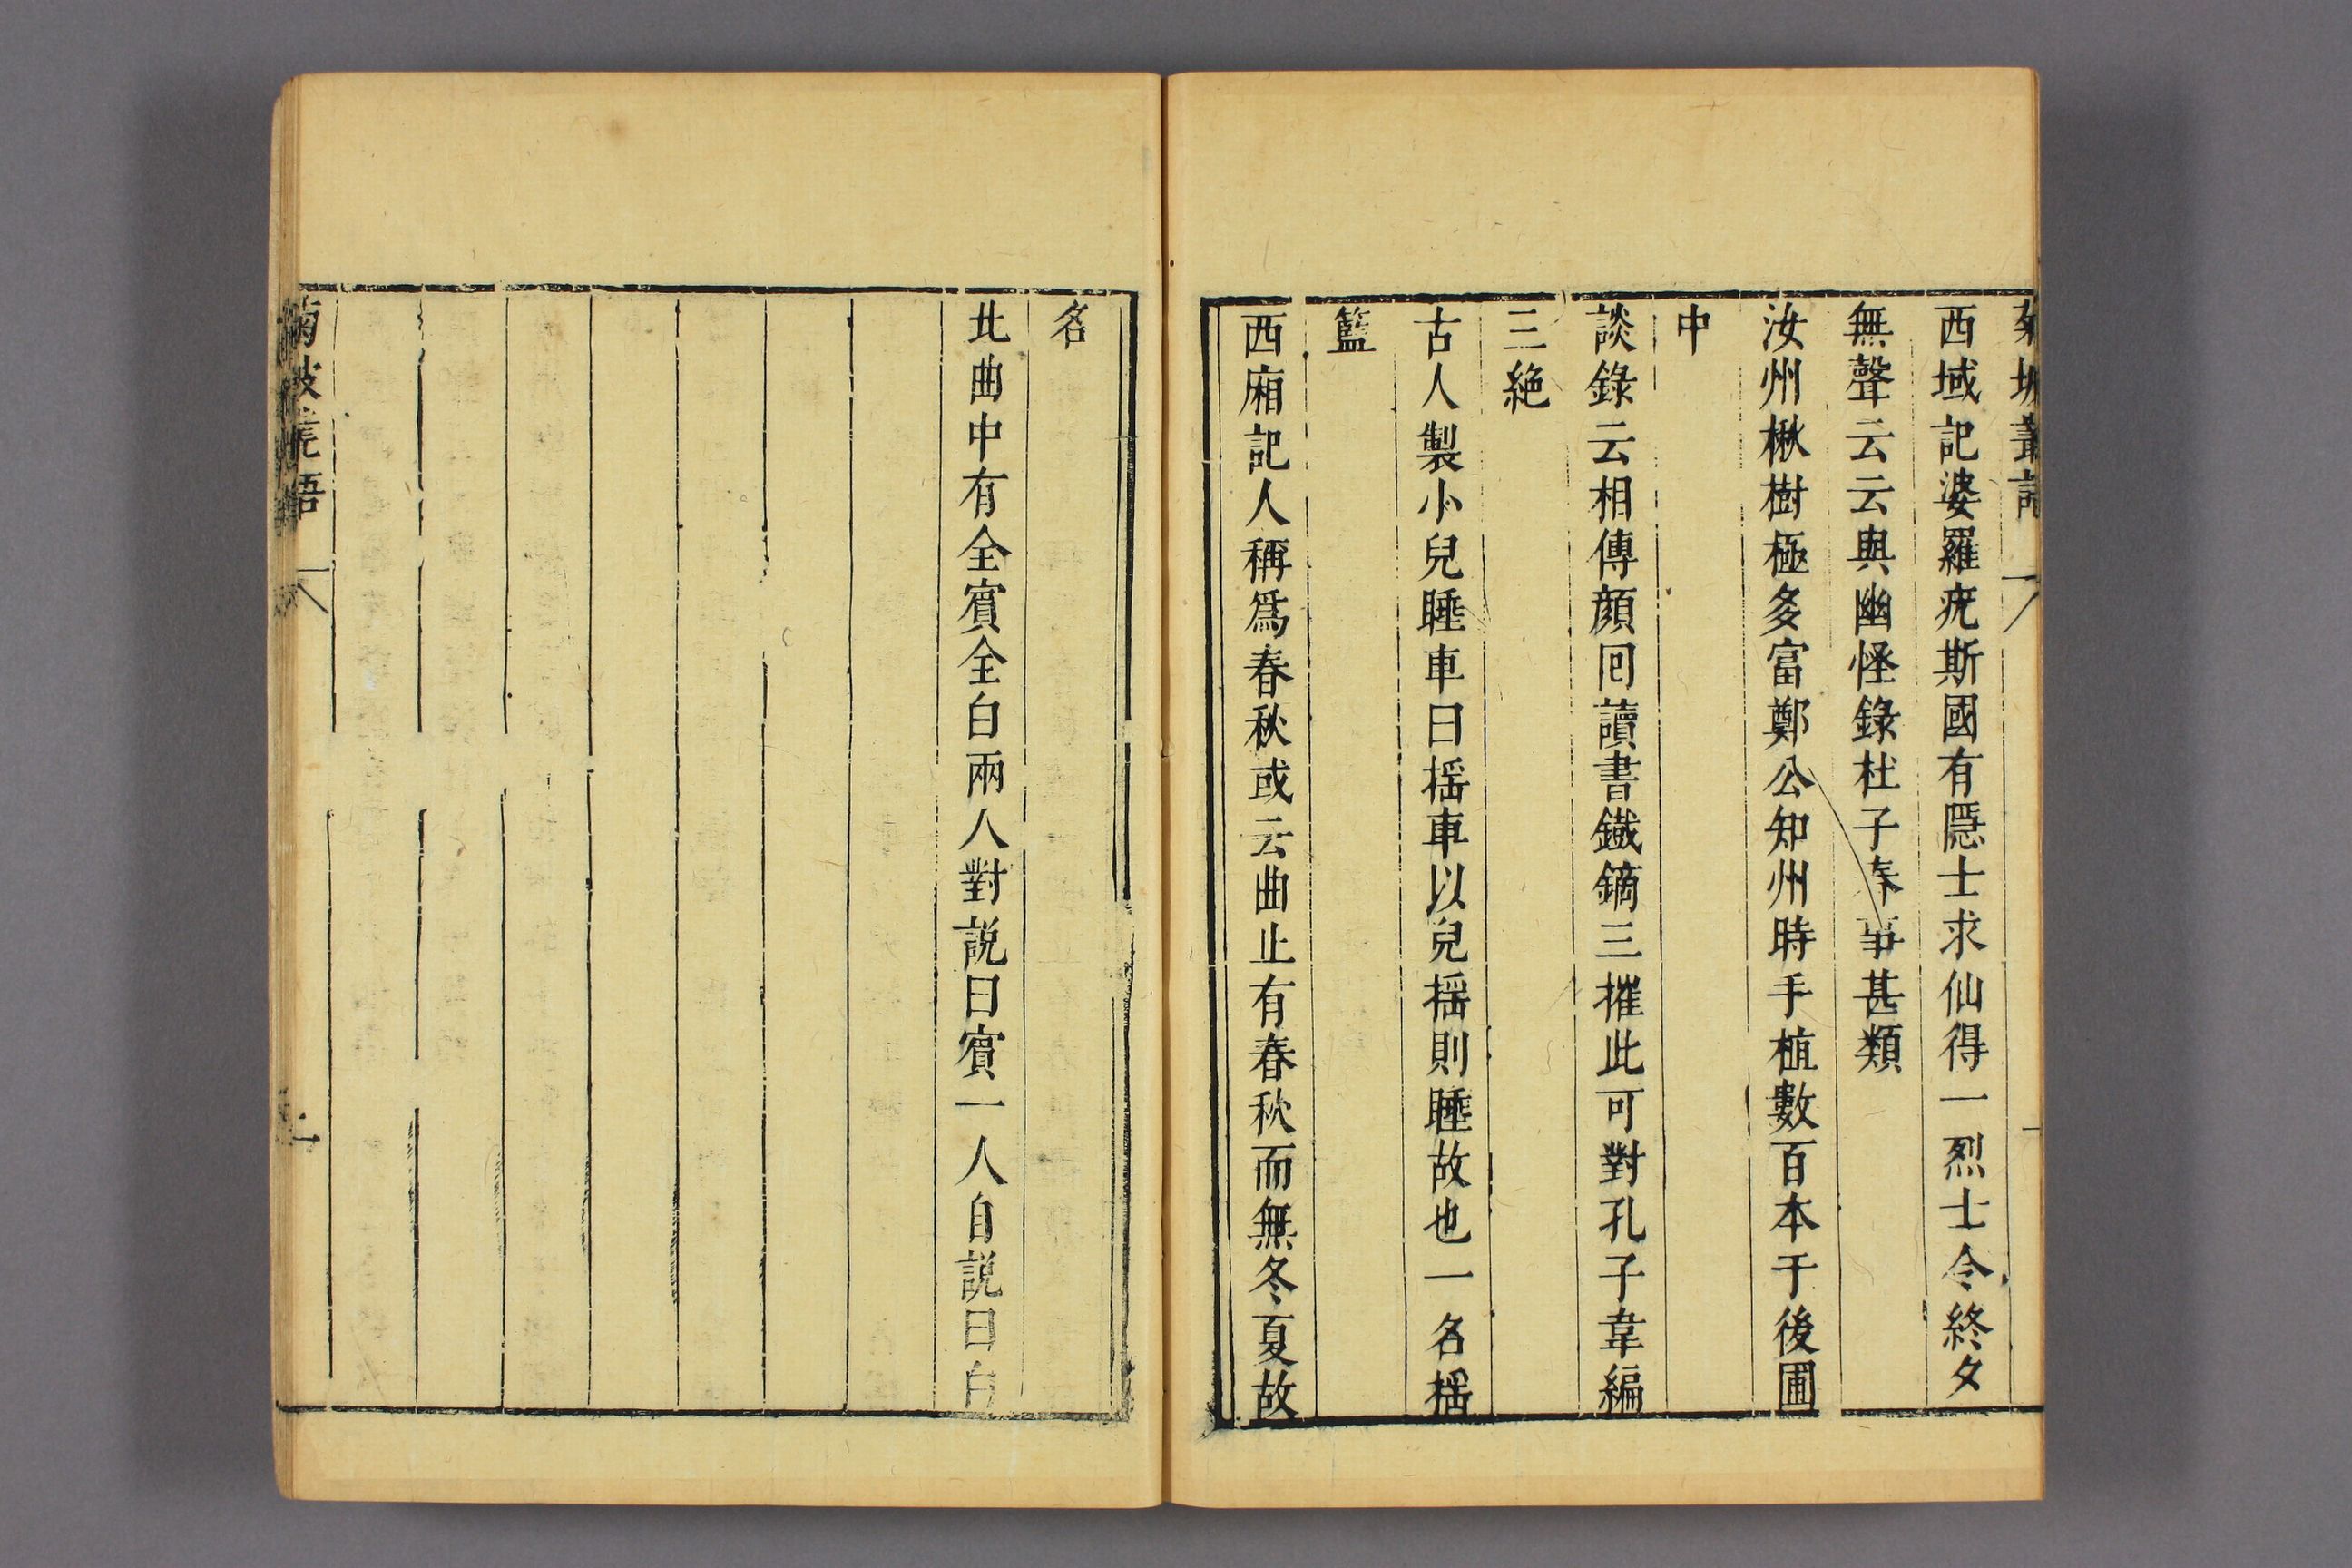 西域記婆羅疣斯國有隱士求仙得一烈士令終夕
無聲云云與幽怪錄杜子春事甚類
汝州楸樹極多富鄭公知州時手植數百本于後圃
中
談錄云相傳顏囘讀書鐵鏑三摧此可對孔子韋編
三絶
古人製小兒睡車曰揺車以兒揺則睡故也一名揺
籃
西廂記人稱爲春秋或云曲止有春秋而無冬夏故
名
北曲中有全賓全白兩人對説曰賓一人自説曰白